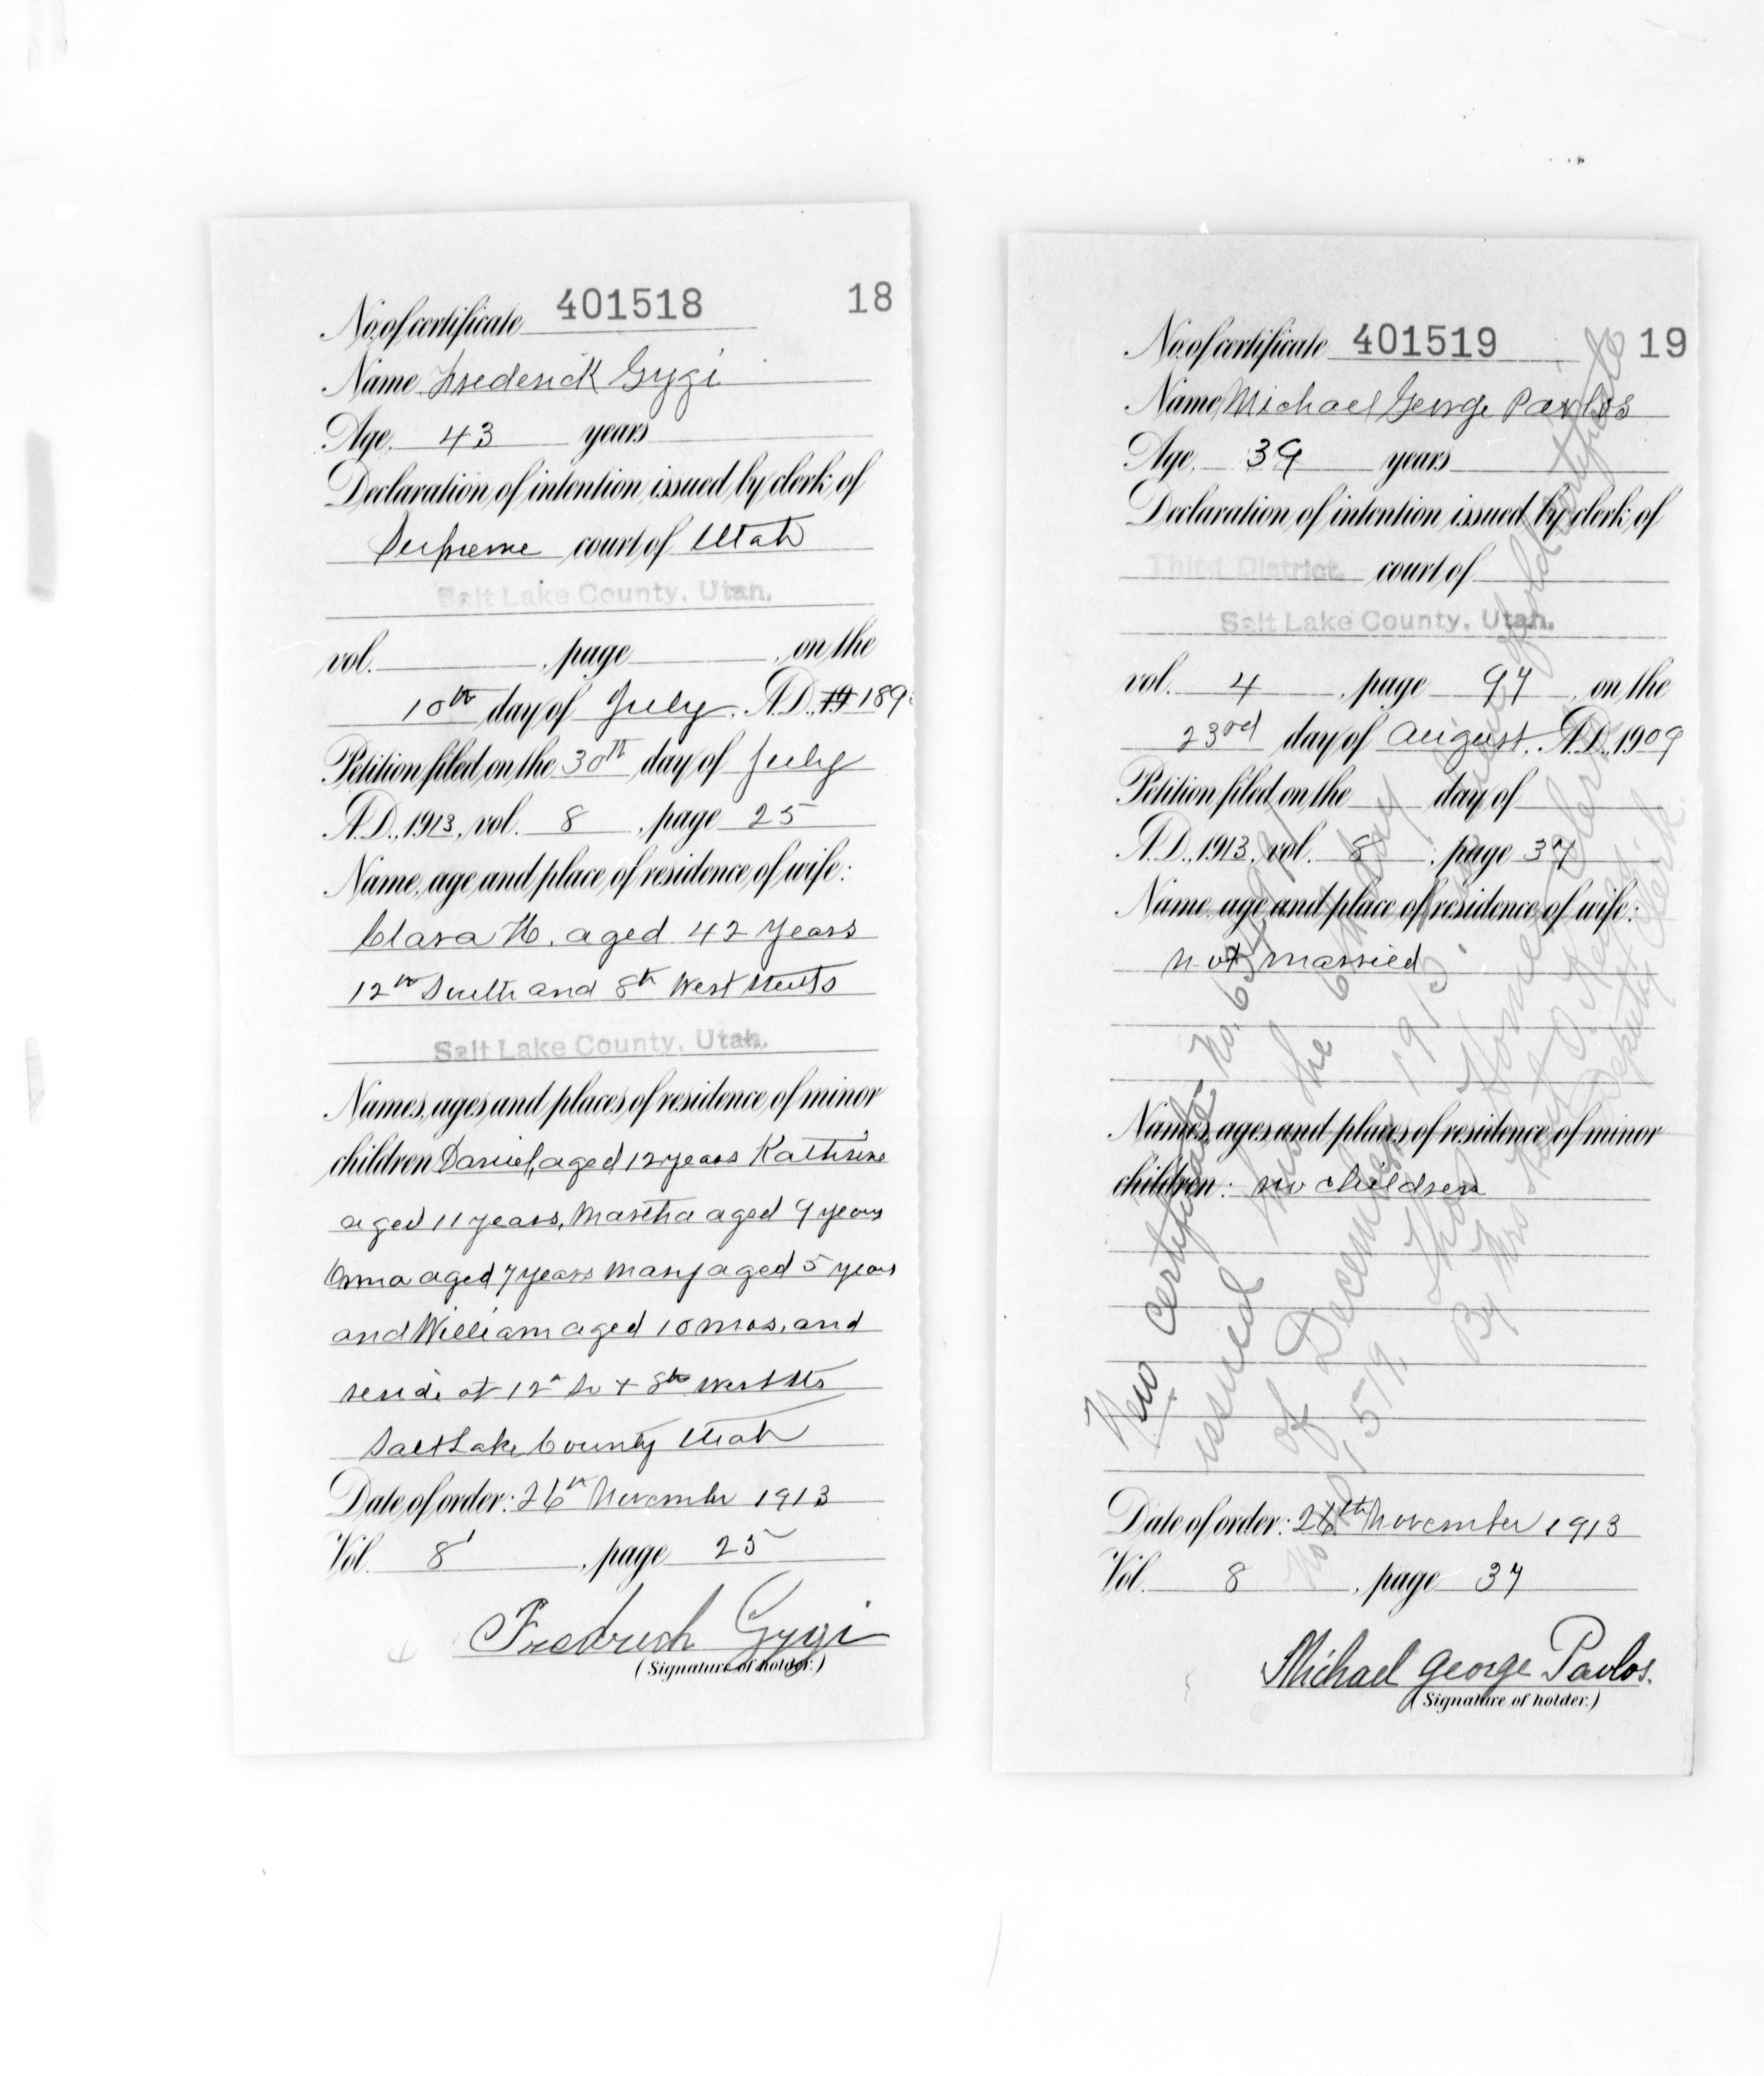 No. of certificate 401518 18
Name Frederick Gygi
Age, 43 years
Declaration of intention issued by clerk of
Supreme court of Utah
Salt Lake County, Utah.
vol. , page , on the
10th day of July, A.D., 19 189
Petition filed on the 30th day of July
A.D., 1913, vol. 8 , page 25
Name, age and place of residence of wife:
Clara H. aged 42 years
12th South and 8th West Streets
Salt Lake County, Utah.
Names, ages and places of residence of minor
children Daniel, aged 12 years Kathrine
aged 11 years, Martha aged 9 years
aged 7 years Mary aged 5 years
and William aged 10 mos. and
reside at 12th So + 8th West Sts
Salt Lake County Utah
Date of order: 26th November 1913
Vol. 8 , page 25
Fredrich Gygi
(Signature of holder.)
No. of certificate 401519 19
Name Michael George Pavlos
Age, 39 years
Declaration of intention issued by clerk of
Third District. court of
Salt Lake County, Utah.
vol. 4 , page 97 on the
23rd day of August, A.D., 1909
Petition filed on the day of
A.D., 1913, vol. 8 , page 37
Name, age and place of residence of wife:
not married
Names, ages and places of residence of minor
children: no children
Date of order: 26th November 1913
Vol. 8 , page 37
Michael George Pavlos.
(Signature of holder.)
New certificate No.
issued this the 6th day
of December 1913.
By Deputy Clerk